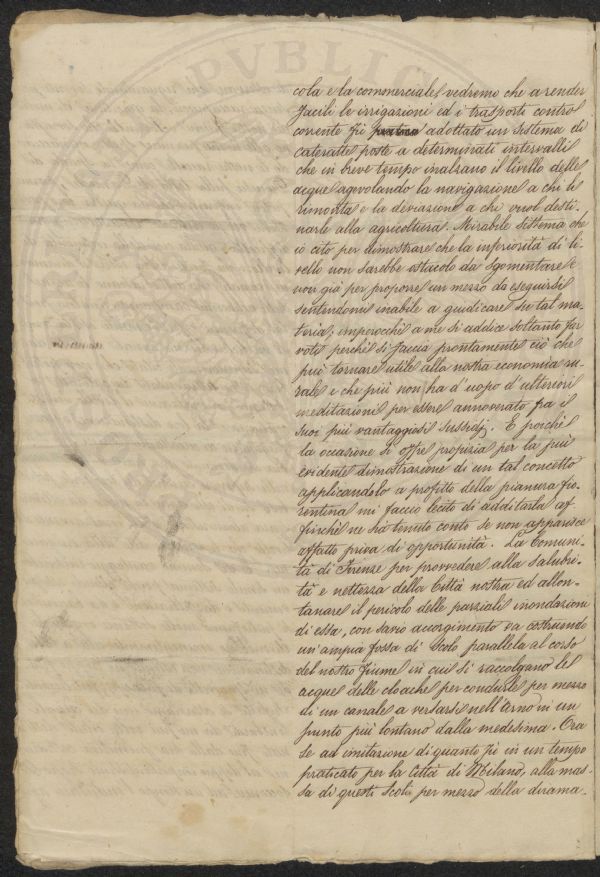 PVBLIC
cola e la commerciale, vedremo che a render
facili le irrigazioni ed i trasporti contro
corrente fu adottato un sistema di
cateratte poste a determinati intervalli
che in breve tempo inalzano il livello delle
acque agevolando la navigazione a chi li
rimonta e la deviazione a chi vuol desti-
narle alla agricoltura. Mirabile sistema che
io cito per dimostrare che la inferiorità di li-
vello non sarebbe ostacolo da sgomentare e
non già per proporre un mezzo da eseguirsi
sentendomi inabile a giudicare su tal ma-
teria; imperocchè a me si addice soltanto far
voti perchè si faccia prontamente ciò che
può tornare utile alla nostra economia ru-
rale e che più non ha d'uopo d'ulteriori
meditazioni per essere annoverato fra i
suoi più vantaggiosi sussidj. E poichè
la occasione si offre propizia per la più
evidente dimostrazione di un tal concetto
applicandolo a profitto della pianura fio-
rentina mi faccio lecito di additarla af
finchè ne sia tenuto conto se non apparisce
affatto priva di opportunità. La Comuni-
tà di Firenze per provvedere alla salubri-
tà e nettezza della Città nostra ed allon-
tanare il pericolo delle parziali inondazioni
di essa, con savio accorgimento va costruendo
un'ampia fossa di scolo parallela al corso
del nostro fiume in cui si raccolgano le
acque delle cloache per condurle per mezzo
di un canale a versarsi nell'Arno in un
punto più lontano dalla medesima. Ora
se ad imitazione di quanto fu in un tempo
praticato per la Città di Milano, alla mas-
sa di questi scoli per mezzo della dirama-